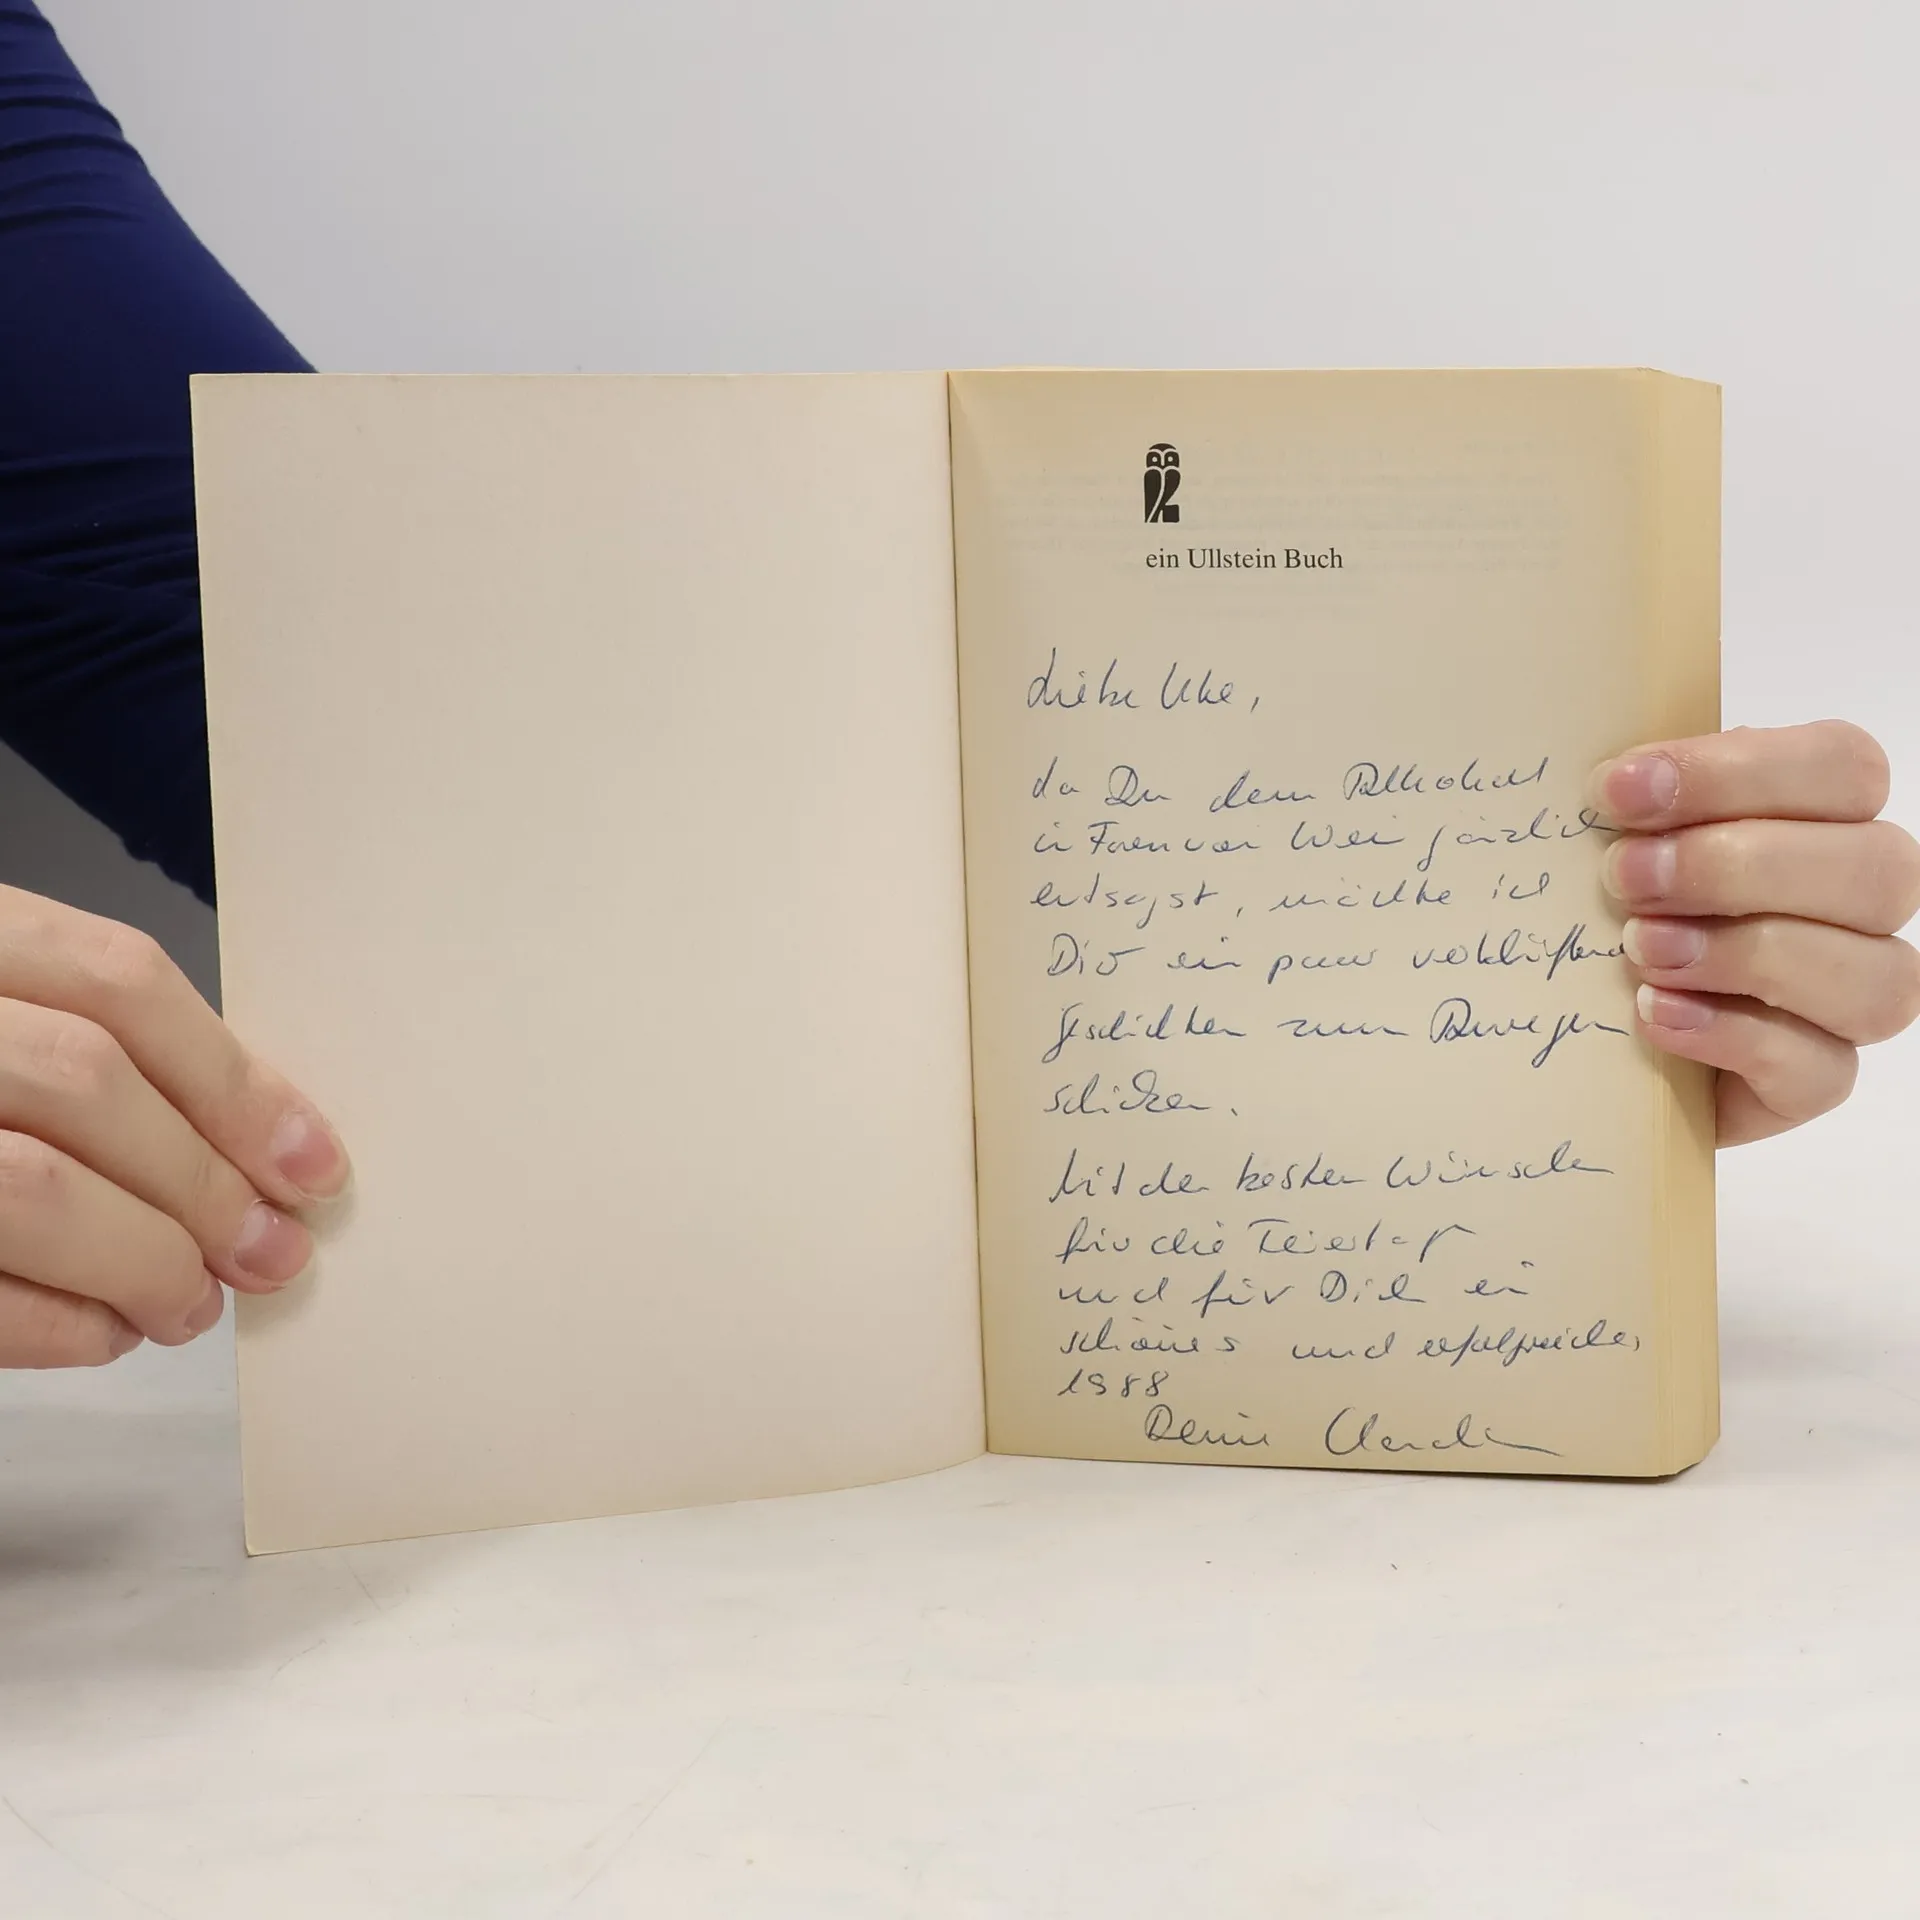 ein Ullstein Buch
Liebe Uke,
da Du dem Alkohol
in Form von Wein gänzlich
entsagst, möchte ich
Dir ein paar verblüffende
Geschichten zum
schicken.
Mit den besten Wünschen
für die Feiertage
und für Dich ein
schönes und erfolgreiches
1988